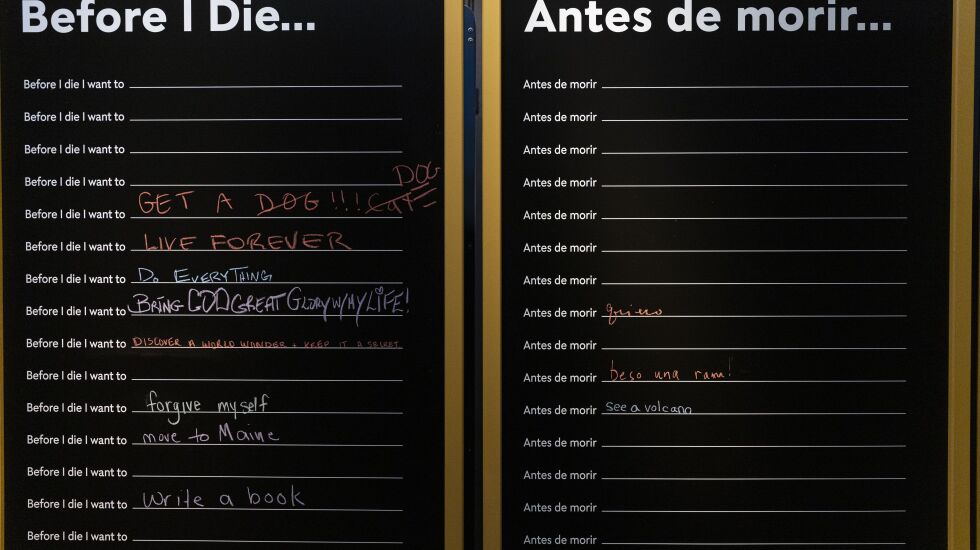 Before I Die...
Before I die I want to
Before I die I want to
Before I die I want to
Before I die I want to DOG
Before I die I want to GET A DOG !!! Cat
Before I die I want to LIVE FOREVER
Before I die I want to DO EVERYTHING
Before I die I want to BRING GOD GREAT GLORY W/ MY LIFE!
Before I die I want to DISCOVER A WORLD WONDER + KEEP IT A SECRET
Before I die I want to
Before I die I want to forgive myself
Before I die I want to move to Maine
Before I die I want to
Before I die I want to Write a book
Before I die I want to
Antes de morir...
Antes de morir
Antes de morir
Antes de morir
Antes de morir
Antes de morir
Antes de morir
Antes de morir
Antes de morir quiero
Antes de morir
Antes de morir beso una rana!
Antes de morir see a volcano
Antes de morir
Antes de morir
Antes de morir
Antes de morir